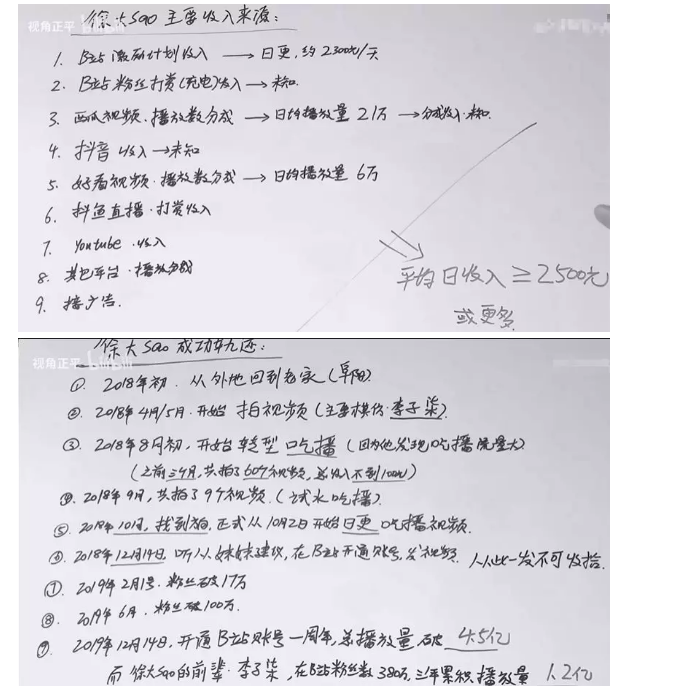 徐大sao 主要收入来源:
视角正平 bilibili
1. B站激励计划收入 → 日更,约2300元/天
2. B站粉丝打赏(充电)收入 → 未知.
3. 西瓜视频·播放数分成 → 日均播放量 21万 → 分成收入·未知.
4. 抖音 收入 → 未知
5. 好看视频·播放数分成 → 日均播放量 6万
6. 斗鱼直播·打赏收入
7. Youtube·收入
8. 其它平台·播放分成
9. 接广告.
平均日收入 ≥ 2500元
或更多
徐大sao 成功轨迹:
视角正平 bilibili
①. 2018年初. 从外地回到老家(阜阳).
②. 2018年4月/5月·开始 拍视频(主要模仿·李子柒).
③. 2018年8月初,开始转型 吃播(因为他发现吃播流量大)
(之前三个月,共拍了60个视频,总收入不到100元)
④. 2018年9月,共拍了9个视频.(试水吃播)
⑤. 2018年10月,找到狗,正式从10月2日开始日更吃播视频.
⑥. 2018年12月14日,听从妹妹建议,在B站开通账号,发视频. 从此一发不可收拾.
⑦. 2019年2月1号·粉丝破17万
⑧. 2019年6月·粉丝破100万.
⑨. 2019年12月14日,开通B站账号一周年,总播放量破 4.5亿
而徐大sao的前辈·李子柒,在B站粉丝数380万,三年累积播放量 1.2亿